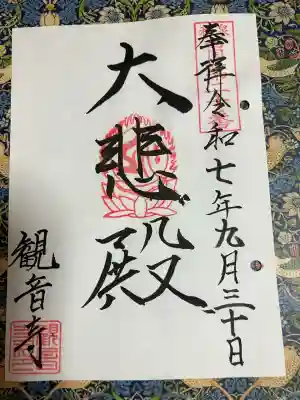 奉拝 令和七年九月三十日
大悲殿
観音寺